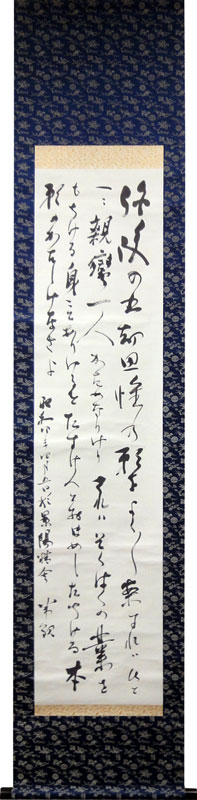 弥陀の五劫思惟の願をよく〳〵案ずれバひと
へニ親鸞一人がためなりけりされバそくばくの業を
もちける身にてありけるをたすけんとおぼしめしたちける本
願のかたじけなさよ 昭和 年四月五日於